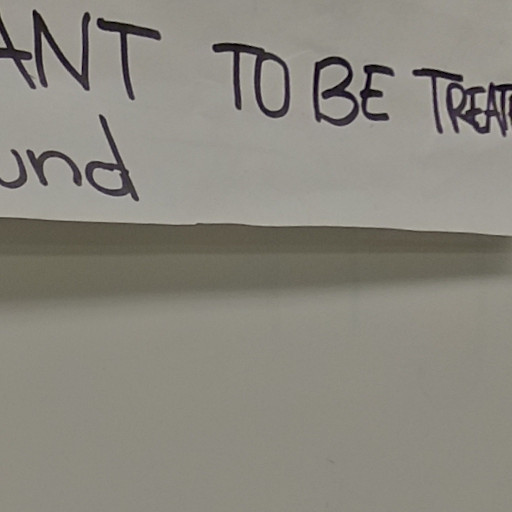 ANT TO BE TREAT
und